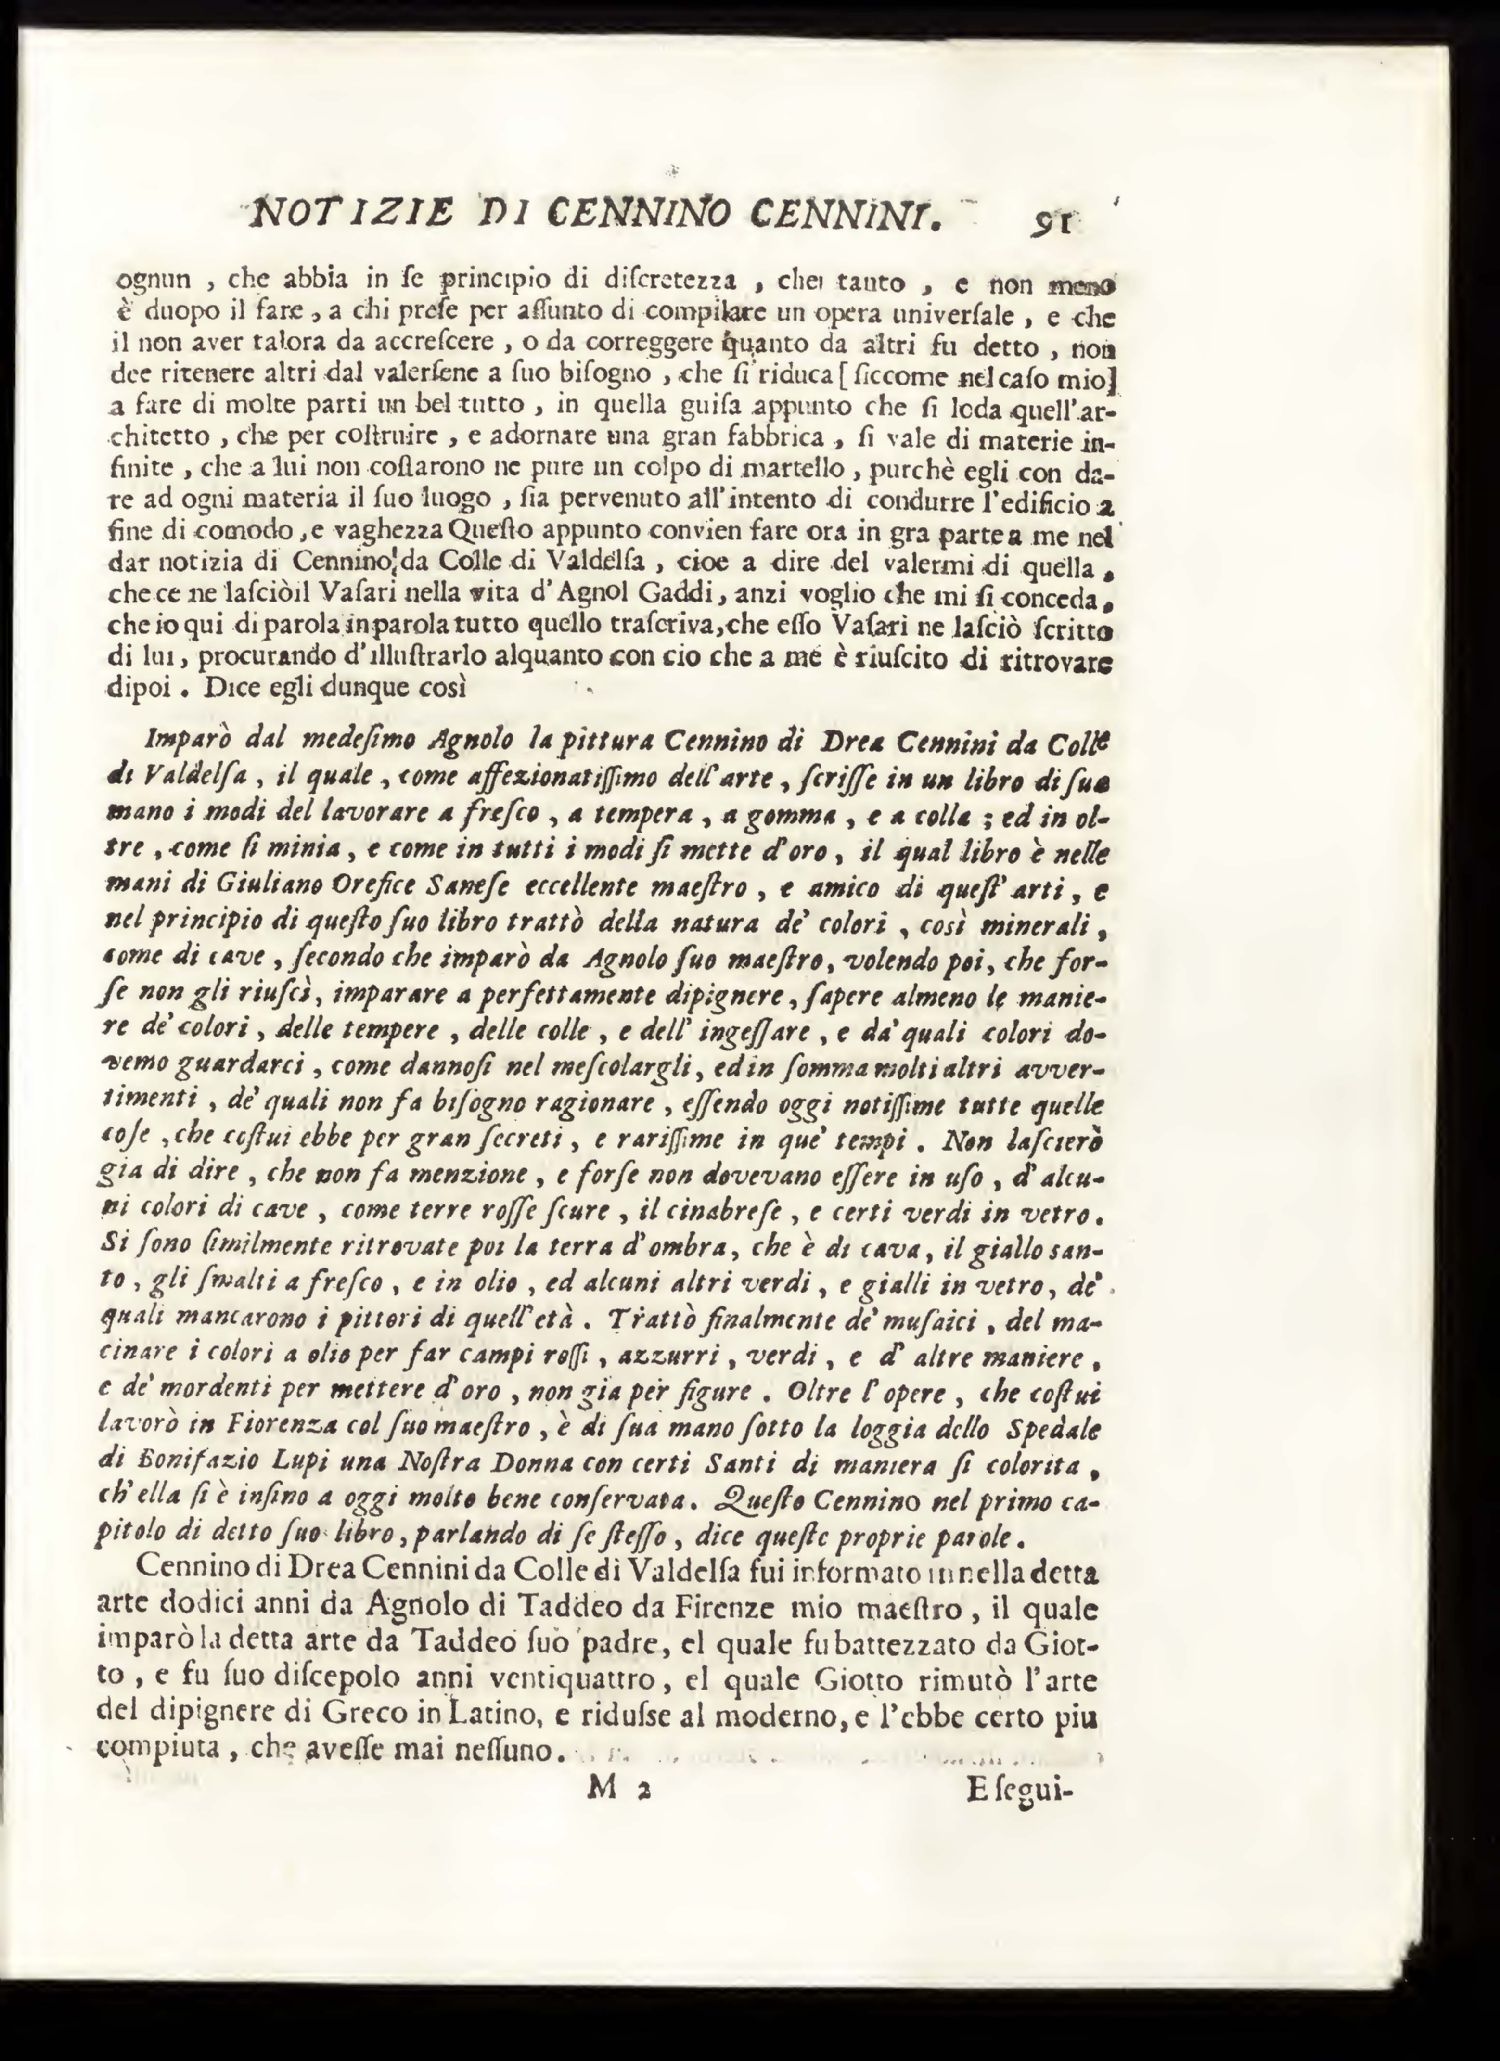 NOTIZIE DI CENNINO CENNINI. 91
ognun , che abbia in ſe principio di diſcretezza , che tanto , e non meno
è duopo il fare , a chi preſe per aſſunto di compilare un opera univerſale , e che
il non aver talora da accreſcere , o da correggere quanto da altri fu detto , non
dee ritenere altri dal valerſene a ſuo biſogno , che ſi riduca [ ſiccome nel caſo mio]
a fare di molte parti un bel tutto , in quella guiſa appunto che ſi loda quell'ar-
chitetto , che per coſtruire , e adornare una gran fabbrica , ſi vale di materie in-
finite , che a lui non coſtarono ne pure un colpo di martello , purchè egli con da-
re ad ogni materia il ſuo luogo , ſia pervenuto all'intento di condurre l'edificio a
fine di comodo, e vaghezza Queſto appunto convien fare ora in gra parte a me nel
dar notizia di Cennino da Colle di Valdelſa , cioe a dire del valermi di quella ,
che ce ne laſciò il Vaſari nella vita d'Agnol Gaddi, anzi voglio che mi ſi conceda,
che io qui di parola in parola tutto quello traſcriva, che eſſo Vaſari ne laſciò ſcritto
di lui, procurando d'illuſtrarlo alquanto con cio che a me è riuſcito di ritrovare
dipoi . Dice egli dunque così
Imparò dal medeſimo Agnolo la pittura Cennino di Drea Cennini da Colle
di Valdelſa , il quale , come affezionatiſſimo dell'arte , ſcriſſe in un libro di ſua
mano i modi del lavorare a freſco , a tempera , a gomma , e a colla ; ed in ol-
tre , come ſi minia , e come in tutti i modi ſi mette d'oro , il qual libro è nelle
mani di Giuliano Orefice Saneſe eccellente maeſtro , e amico di queſt'arti , e
nel principio di queſto ſuo libro trattò della natura de' colori , così minerali ,
come di cave , ſecondo che imparò da Agnolo ſuo maeſtro, volendo poi, che for-
ſe non gli riuſcì, imparare a perfettamente dipignere, ſapere almeno le manie-
re de' colori , delle tempere , delle colle , e dell' ingeſſare , e da' quali colori do-
vemo guardarci , come dannoſi nel meſcolargli, ed in ſomma molti altri avver-
timenti , de' quali non fa biſogno ragionare , eſſendo oggi notiſſime tutte quelle
coſe , che coſtui ebbe per gran ſecreti , e rariſſime in que' tempi . Non laſcierò
gia di dire , che non fa menzione , e forſe non dovevano eſſere in uſo , d' alcu-
ni colori di cave , come terre roſſe ſcure , il cinabreſe , e certi verdi in vetro .
Si ſono ſimilmente ritrovate poi la terra d'ombra, che è di cava, il giallo san-
to , gli ſmalti a freſco , e in olio , ed alcuni altri verdi , e gialli in vetro, de'
quali mancarono i pittori di quell'età . Trattò finalmente de' muſaici , del ma-
cinare i colori a olio per far campi roſſi , azzurri , verdi , e d' altre maniere ,
e de' mordenti per mettere d'oro , non gia per figure . Oltre l' opere , che coſtui
lavorò in Fiorenza col ſuo maeſtro , è di ſua mano ſotto la loggia dello Spedale
di Bonifazio Lupi una Noſtra Donna con certi Santi di maniera ſi colorita ,
ch' ella ſi è inſino a oggi molto bene conſervata . Queſto Cennino nel primo ca-
pitolo di detto ſuo libro, parlando di ſe ſteſſo , dice queſte proprie parole .
Cennino di Drea Cennini da Colle di Valdelſa fui informato in nella detta
arte dodici anni da Agnolo di Taddeo da Firenze mio maeſtro , il quale
imparò la detta arte da Taddeo ſuo padre, el quale fu battezzato da Giot-
to , e fu ſuo diſcepolo anni ventiquattro, el quale Giotto rimutò l'arte
del dipignere di Greco in Latino, e riduſse al moderno, e l'ebbe certo piu
compiuta , che aveſſe mai neſſuno .
M 2 E ſegui-